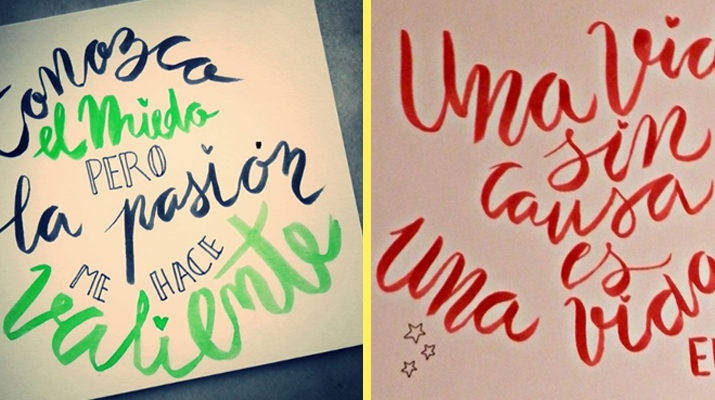 Conozca
el Miedo
PERO
la pasión
ME HACE
valiente
Una Vid
sin
causa
es
una vida